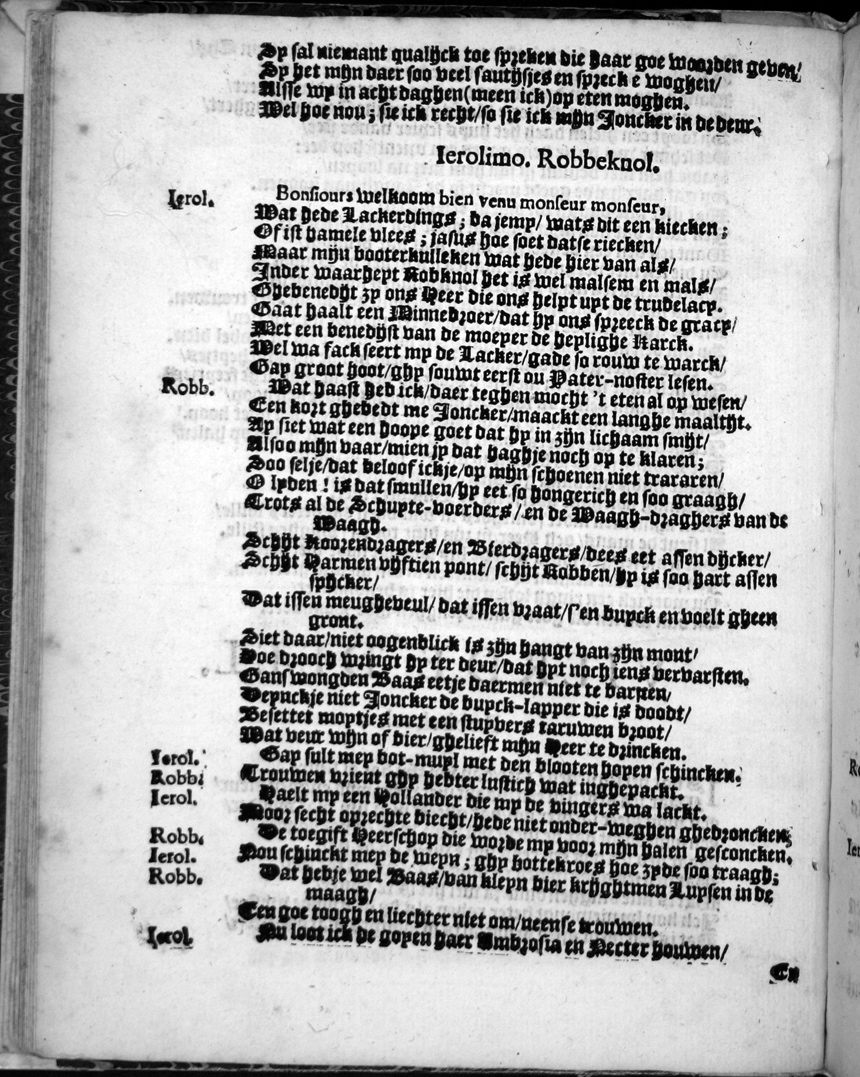 Sy sal niemant qualijck toe spreken die haar goe woorden geven/
Sy het mijn daer soo veel sautijsjes en spreck e woghen/
Alsse wy in acht daghen (meen ick) op eten moghen.
Wel hoe nou; sie ick recht/so sie ick mijn Joncker in de deur.
Ierolimo. Robbeknol.
Ierol. Bonsiours welkoom bien venu monseur monseur,
Wat hede Lackerdings; da jemp/ wats dit een kiecken;
Of ist hamele vlees; jasus hoe soet datse riecken/
Maar mijn booterkulleken wat hede hier van als/
Inder waarheyt Robknol het is wel malsem en mals/
Ghebenedijt zy ons Heer die ons helpt uyt de trubelacy.
Gaat haalt een Minnebroer/dat hy ons spreeck de gracy/
Met een benedijst van de moeyer de heylighe Karck.
Wel wa fack seert my de Lacker/gade so rouw te warck/
Gay groot hoot/ghy souwt eerst ou Pater-noster lesen.
Robb. Wat haast heb ick/daer teghen mocht 't eten al op wesen/
Een kort ghebedt me Joncker/maackt een langhe maaltijt.
Ay siet wat een hoope goet dat hy in zijn lichaam smijt/
Alsoo mijn vaar/mien jy dat haghje noch op te klaren;
Soo selje/dat beloof ickje/op mijn schoenen niet trararen/
O lyden! is dat smullen/hy eet so hongerich en soo graagh/
Trots al de Schuyte-voerders/en de Waagh-draghers van de
Waagh.
Schijt Koorendragers/en Bierdragers/dees eet assen dijcker/
Schijt Harmen vijftien pont/ schijt Robben/hy is soo hart assen
spijcker/
Dat issen meugheveul/ dat issen vraat/s'en buyck en voelt gheen
gront.
Siet daar/niet oogenblick is zijn hangt van zijn mont/
Doe drooch wringt hy ter deur/dat hyt noch iens vervarsten.
Gans wongden Baas eetje daermen niet te barsten/
Depuckje niet Joncker de buyck-lapper die is doodt/
Besettet moptjes met een stuyvers taruwen broot/
Wat veur wijn of bier/ghelieft mijn Heer te drincken.
Ierol. Gay sult mey bot-muyl met den blooten hopen schincken.
Robb. Trouwen vrient ghy hebter lustich wat inghepackt.
Ierol. Haelt my een Hollander die my de vingers wa lackt.
Moor secht oprechte biecht/hede niet onder-weghen ghedroncken;
Robb. De toegift Heerschop die worde my voor mijn halen gesconcken.
Ierol. Nou schinckt mey de weyn; ghy bottekroes hoe zyde soo traagh;
Robb. Dat hebje wel Baas/van kleyn bier krijghtmen Luysen in de
maagh/
Een goe toogh en liechter niet om/neense trouwen.
Ierol. Nu loot ick de goyen haer Ambrosia en Necter houwen/
En